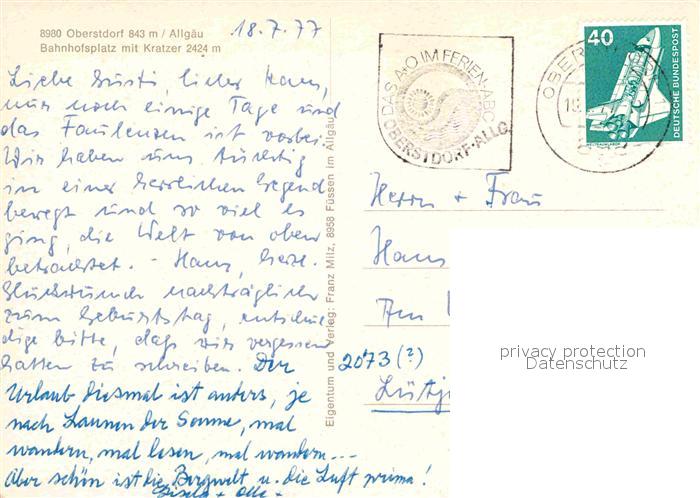 8980 Oberstdorf 843 m / Allgäu
Bahnhofsplatz mit Kratzer 2424 m
18.7.77
Liebe Gusti, lieber Hans,
nur noch einige Tage und
das Faulenzen ist vorbei.
Wir haben uns tüchtig
in einer herrlichen Gegend
bewegt und so viel es
ging, die Welt von oben
betrachtet. - Hans, herzl.
Glückwunsch nachträglich
zum Geburtstag, entschul
dige bitte, daß wir vergessen
hatten zu schreiben. Der
Urlaub diesmal ist anders, je
nach Launen der Sonne, mal
wandern, mal lesen, mal wandern...
Aber schön ist die Bergwelt u. die Luft prima!
Gisela +
Eigentum und Verlag: Franz Milz, 8958 Füssen im Allgäu
DAS A+O IM FERIEN-ABC
OBERSTDORF·ALLG
OBER
40
DEUTSCHE BUNDESPOST
WELTRAUMLABOR
Herrn + Frau
Hans
Am
2073 (?)
Lütj
privacy protection
Datenschutz